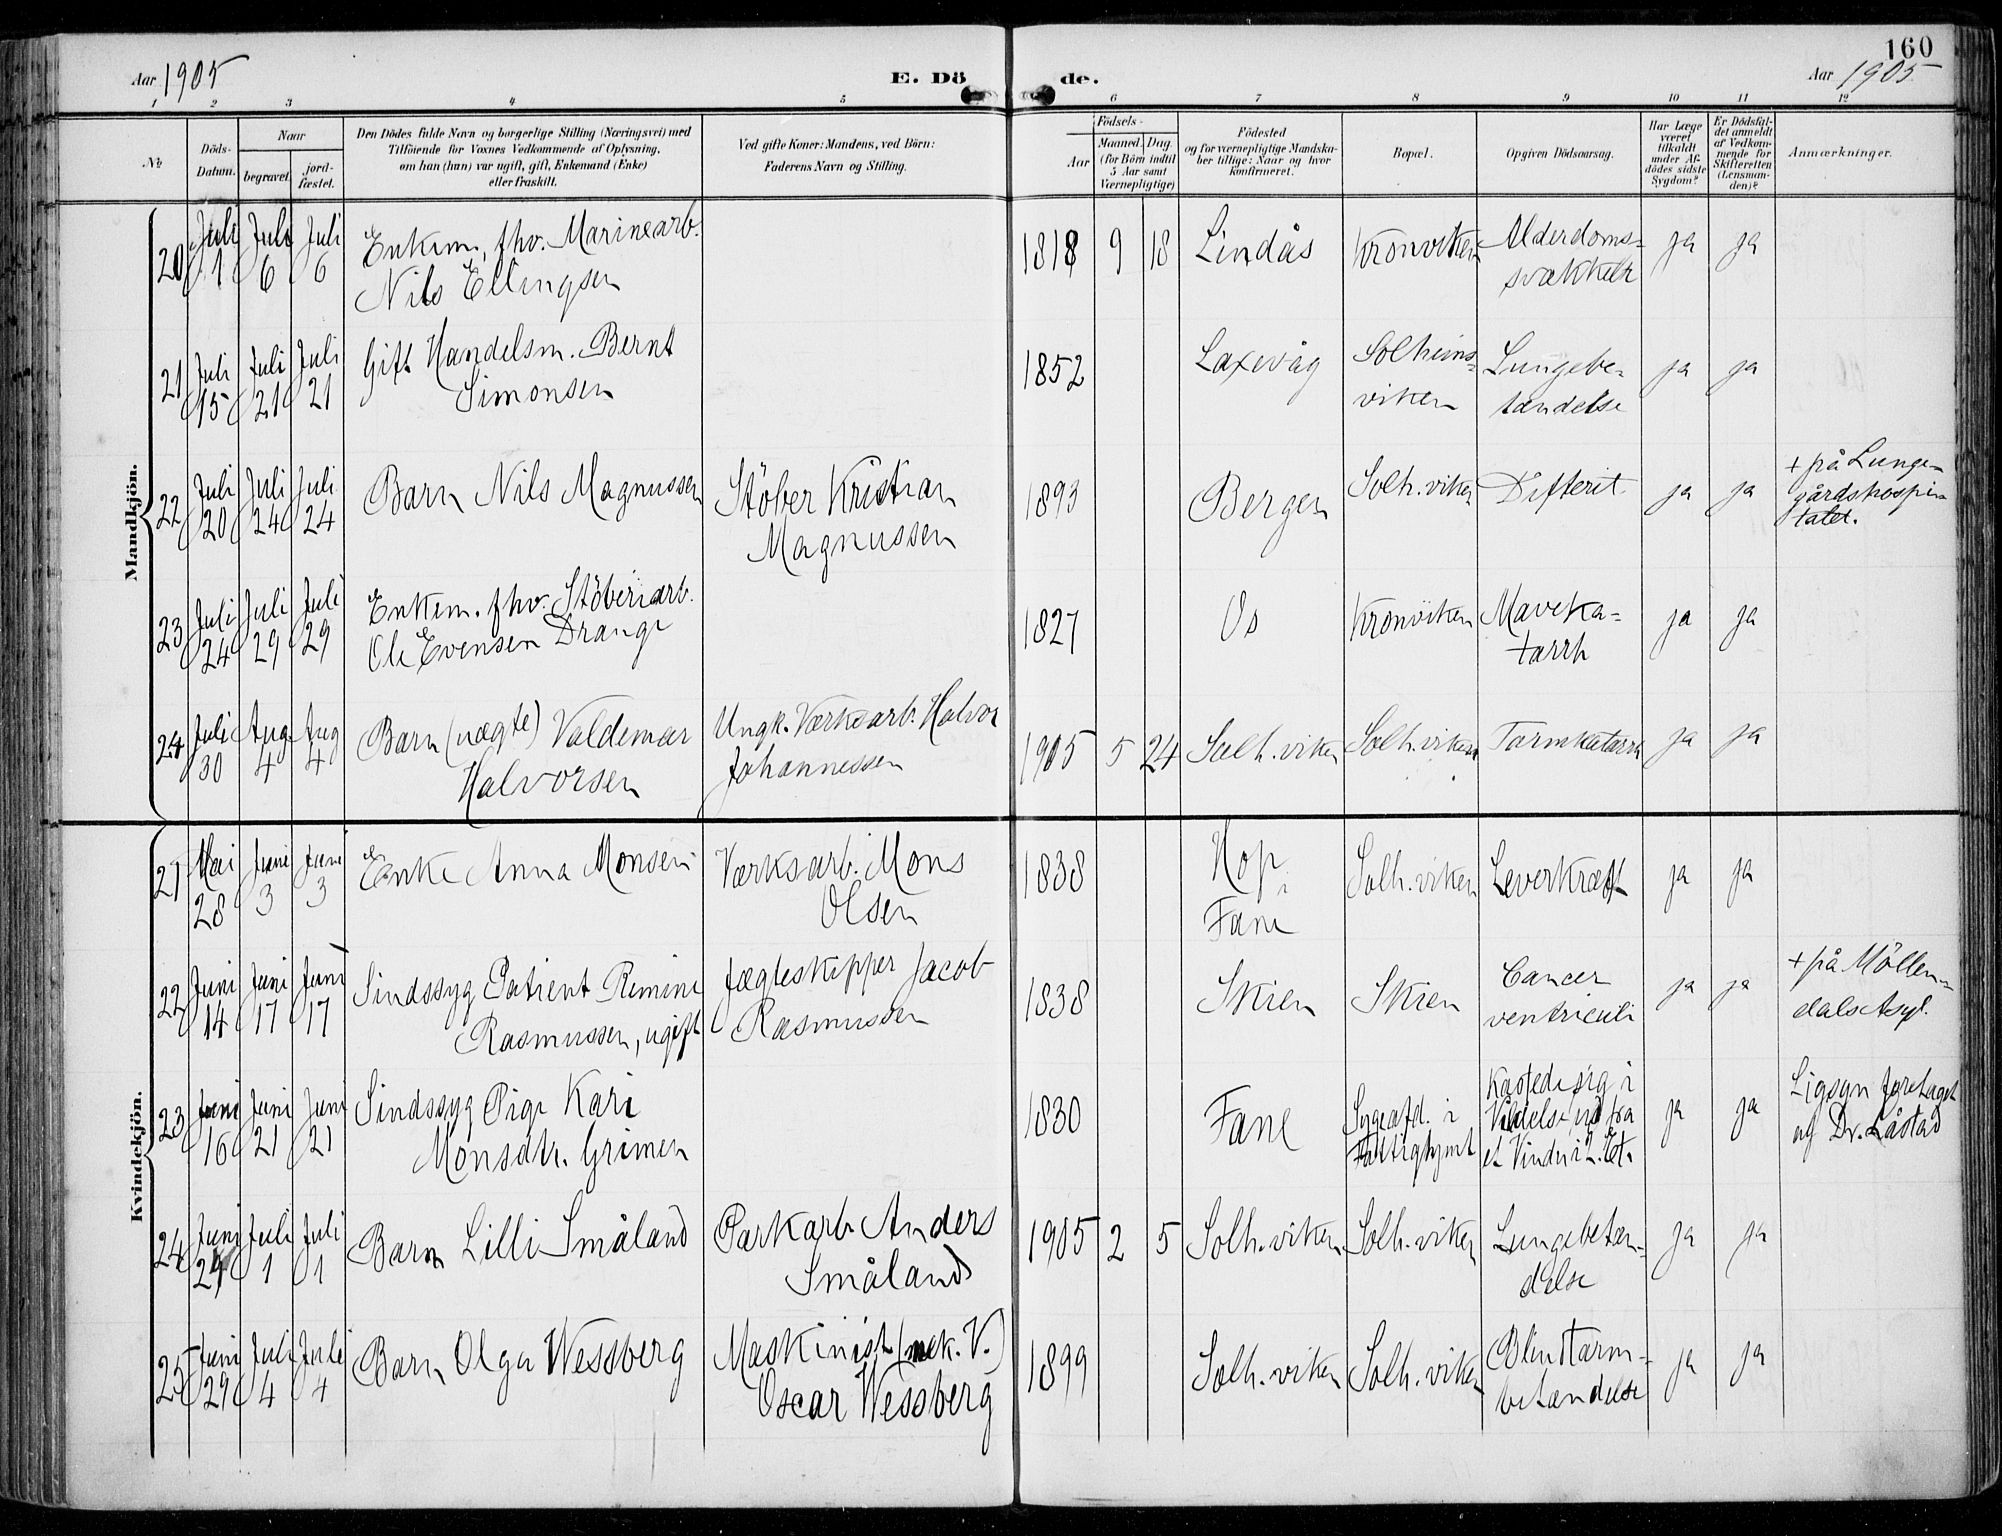 160
Aar 1905 E. Döde. Aar 1905
1 2 3 4 5 6 7 8 9 10 11 12
№ Döds-Datum. Naar begravet. jord-fæstet.
Den Dödes fulde Navn og borgerlige Stilling (Næringsvei) med
Tilföiende for Voxnes Vedkommende af Oplysning,
om han (hun) var ugift, gift, Enkemand (Enke)
eller fraskilt.
Ved gifte Koner: Mandens, ved Börn:
Faderens Navn og Stilling.
Födsels-
Aar Maaned. Dag.
(for Börn indtil
5 Aar samt
Værnepligtige)
Födested
og for værnepligtige Mandska-
ber tillige: Naar og hvor
konfirmeret.
Bopæl.
Opgiven Dödsaarsag.
Har Læge
været
tilkaldt
under Af-
dödes sidste
Sygdom?
Er Dödsfal-
det anmeldt
af Vedkom-
mende for
Skifteretten
(Lensman-
den)?
Anmærkninger.
Mandkjön.
20 Juli 1 Juli 6 Juli 6 Enkem. fhv. Marinearb.
Nils Ellingsen
1818 9 18 Lindås Kronviken Alderdoms-
svækkelse ja ja
21 Juli 15 Juli 21 Juli 21 Gift Handelsm. Bernt
Simonsen
1852 Laxevåg Solheims-
viken Lungebe-
tændelse ja ja
22 Juli 20 Juli 24 Juli 24 Barn Nils Magnussen Stöber Kristian
Magnussen
1893 Bergen Solh.viken Difterit. ja ja + på Lunge-
gårdshospi-
talet.
23 Juli 24 Juli 29 Juli 29 Enkem. fhv. Stöberiarb.
Ole Evensen Drange
1827 Os Kronviken Maveka-
tarrh ja ja
24 Juli 30 Aug 4 Aug 4 Barn (uægte) Valdemar
Halvorsen Ungk. Værksarb. Halvor
Johannessen
1905 5 24 Solh.viken Solh.viken Tarmkatarrh ja ja
Kvindekjön.
21 Mai 28 Juni 3 Juni 3 Enke Anna Monsen Værksarb. Mons
Olsen
1838 Hop i
Fane Solh.viken Leverkræft ja ja
22 Juni 14 Juni 17 Juni 17 Sindssyg Patient Rimine
Rasmussen, ugift Jægteskipper Jacob
Rasmussen
1838 Skien Skien Cancer
ventriculi ja ja + på Möllen-
dals Asyl.
23 Juni 16 Juni 21 Juni 21 Sindssyg Pige Kari
Monsdtr. Grimen
1830 Fane Sygeafd. i
Fattighjmt Kastede sig i
Vildelse ud fra
et Vindu i 2. Et. ja ja Ligsyn foretaget
af Dr. Låstad
24 Juni 29 Juli 1 Juli 1 Barn Lilli Småland Parkarb. Anders
Småland
1905 2 5 Solh.viken Solh.viken Lungebetæn-
delse ja ja
25 Juni 29 Juli 4 Juli 4 Barn Olga Wessberg Maskinist (mek. V.)
Oscar Wessberg
1899 Solh.viken Solh.viken Blindtarm-
betændelse ja ja